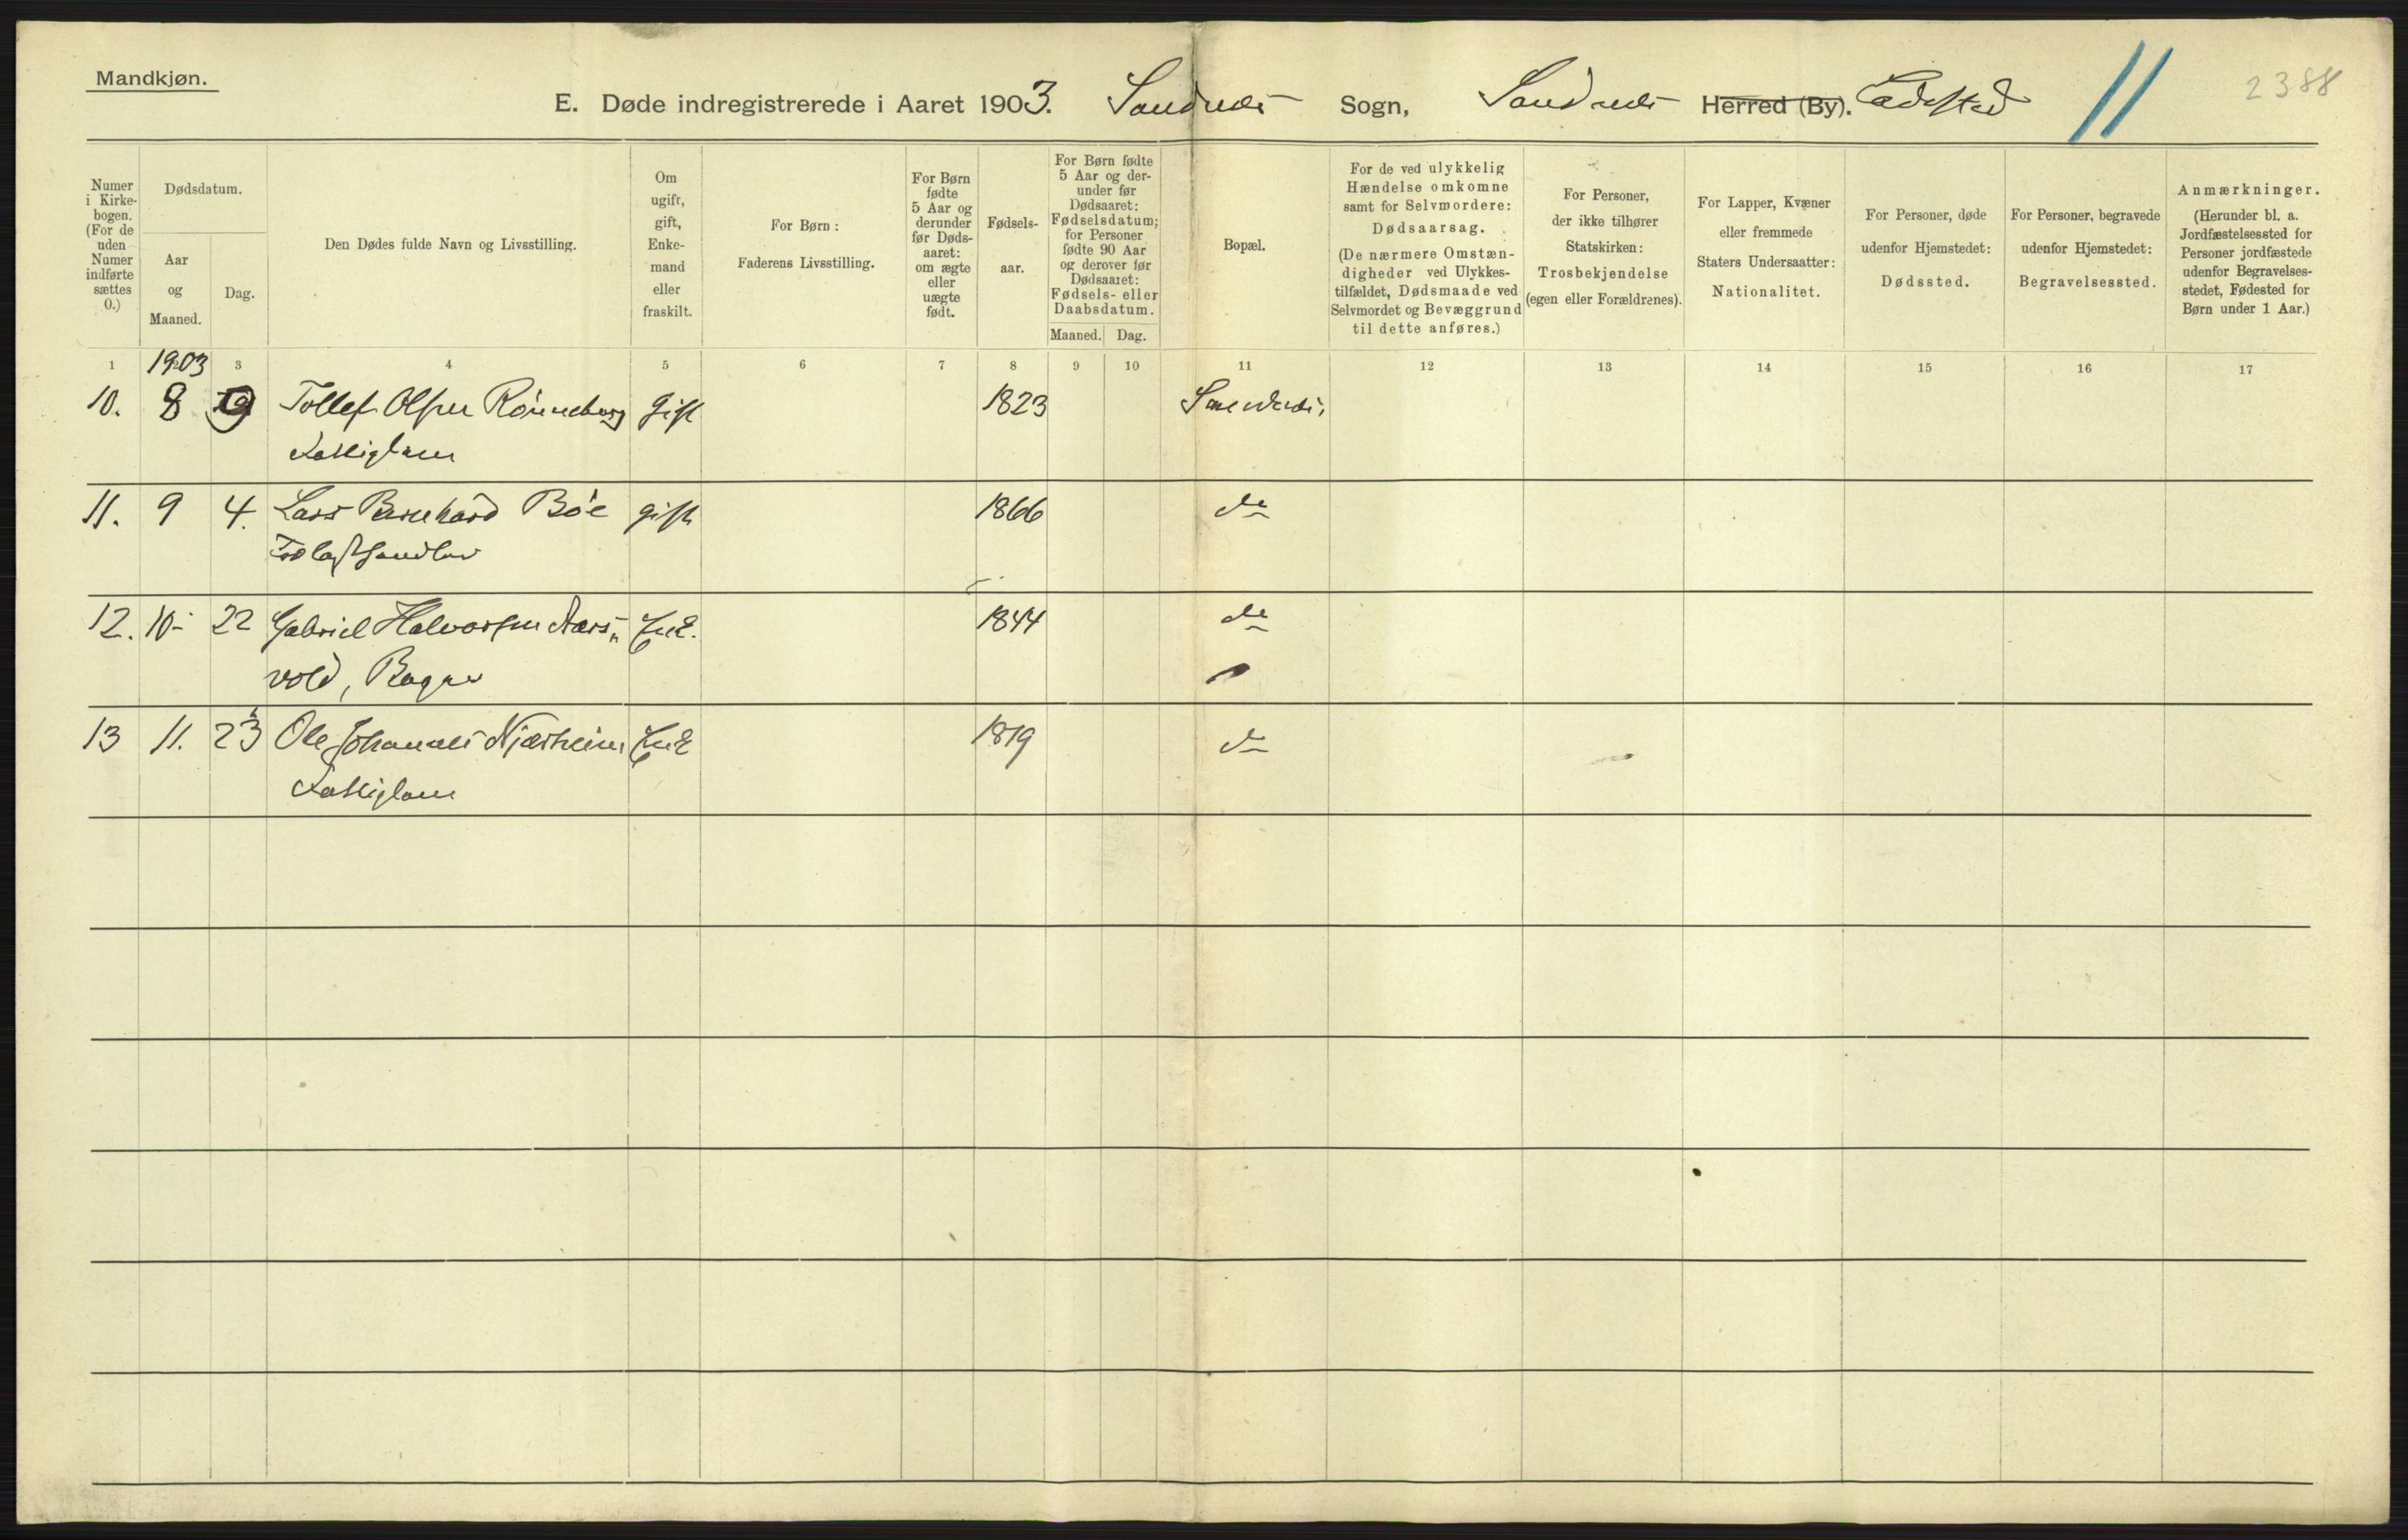 Mandkjøn.
E. Døde indregistrerede i Aaret 1903. Sandnes Sogn, Sandnes Herred (By). Ladested
11
2388
Numer i Kirkebogen. (For de uden Numer indførte sættes 0.)
Dødsdatum.
Aar og Maaned.
Dag.
Den Dødes fulde Navn og Livsstilling.
Om ugift, gift, Enkemand eller fraskilt.
For Børn: Faderens Livsstilling.
For Børn fødte 5 Aar og derunder før Dødsaaret: om ægte eller uægte født.
Fødselsaar.
For Børn fødte 5 Aar og derunder før Dødsaaret: Fødselsdatum; for Personer fødte 90 Aar og derover før Dødsaaret: Fødsels- eller Daabsdatum.
Maaned. Dag.
Bopæl.
For de ved ulykkelig Hændelse omkomne samt for Selvmordere: Dødsaarsag. (De nærmere Omstændigheder ved Ulykkestilfældet, Dødsmaade ved Selvmordet og Bevæggrund til dette anføres.)
For Personer, der ikke tilhører Statskirken: Trosbekjendelse (egen eller Forældrenes).
For Lapper, Kvæner eller fremmede Staters Undersaatter: Nationalitet.
For Personer, døde udenfor Hjemstedet: Dødssted.
For Personer, begravede udenfor Hjemstedet: Begravelsessted.
Anmærkninger. (Herunder bl. a. Jordfæstelsessted for Personer jordfæstede udenfor Begravelsesstedet, Fødested for Børn under 1 Aar.)
1 1903 3 4 5 6 7 8 9 10 11 12 13 14 15 16 17
10. 8 Tollef Olsen Rönneberg Gift 1823 Sandnes,
Fattiglem
11. 9 4. Lars Bernhard Böe gift 1866 do
12. 10- 22 Gabriel Halvorsen Aars„ Enk. 1844 do
vold, Bager
13 11. 23 Ole Johannes Njærheim Enk 1819 do
Fattiglem